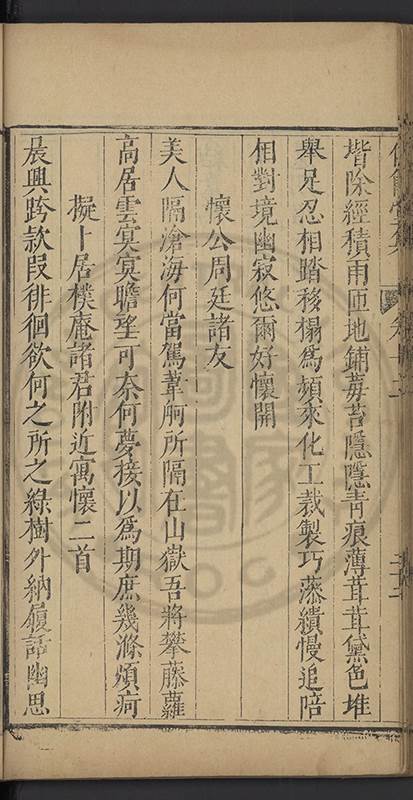 堦除經積雨匝地鋪莓苔隱隱靑痕薄茸茸黛色堆
舉足忍相踏移榻爲頻來化工裁製巧藻繢慢追陪
相對境幽寂悠爾好懷開
懷公周廷諸友
美人隔滄海何當駕葦䑺所隔在山嶽吾將攀藤蘿
高居雲寞寞瞻望可奈何夢接以爲期庶幾滌煩疴
擬卜居樸庵諸君附近寓懷二首
晨興跨款段徘徊欲何之所之綠樹外納履話幽思